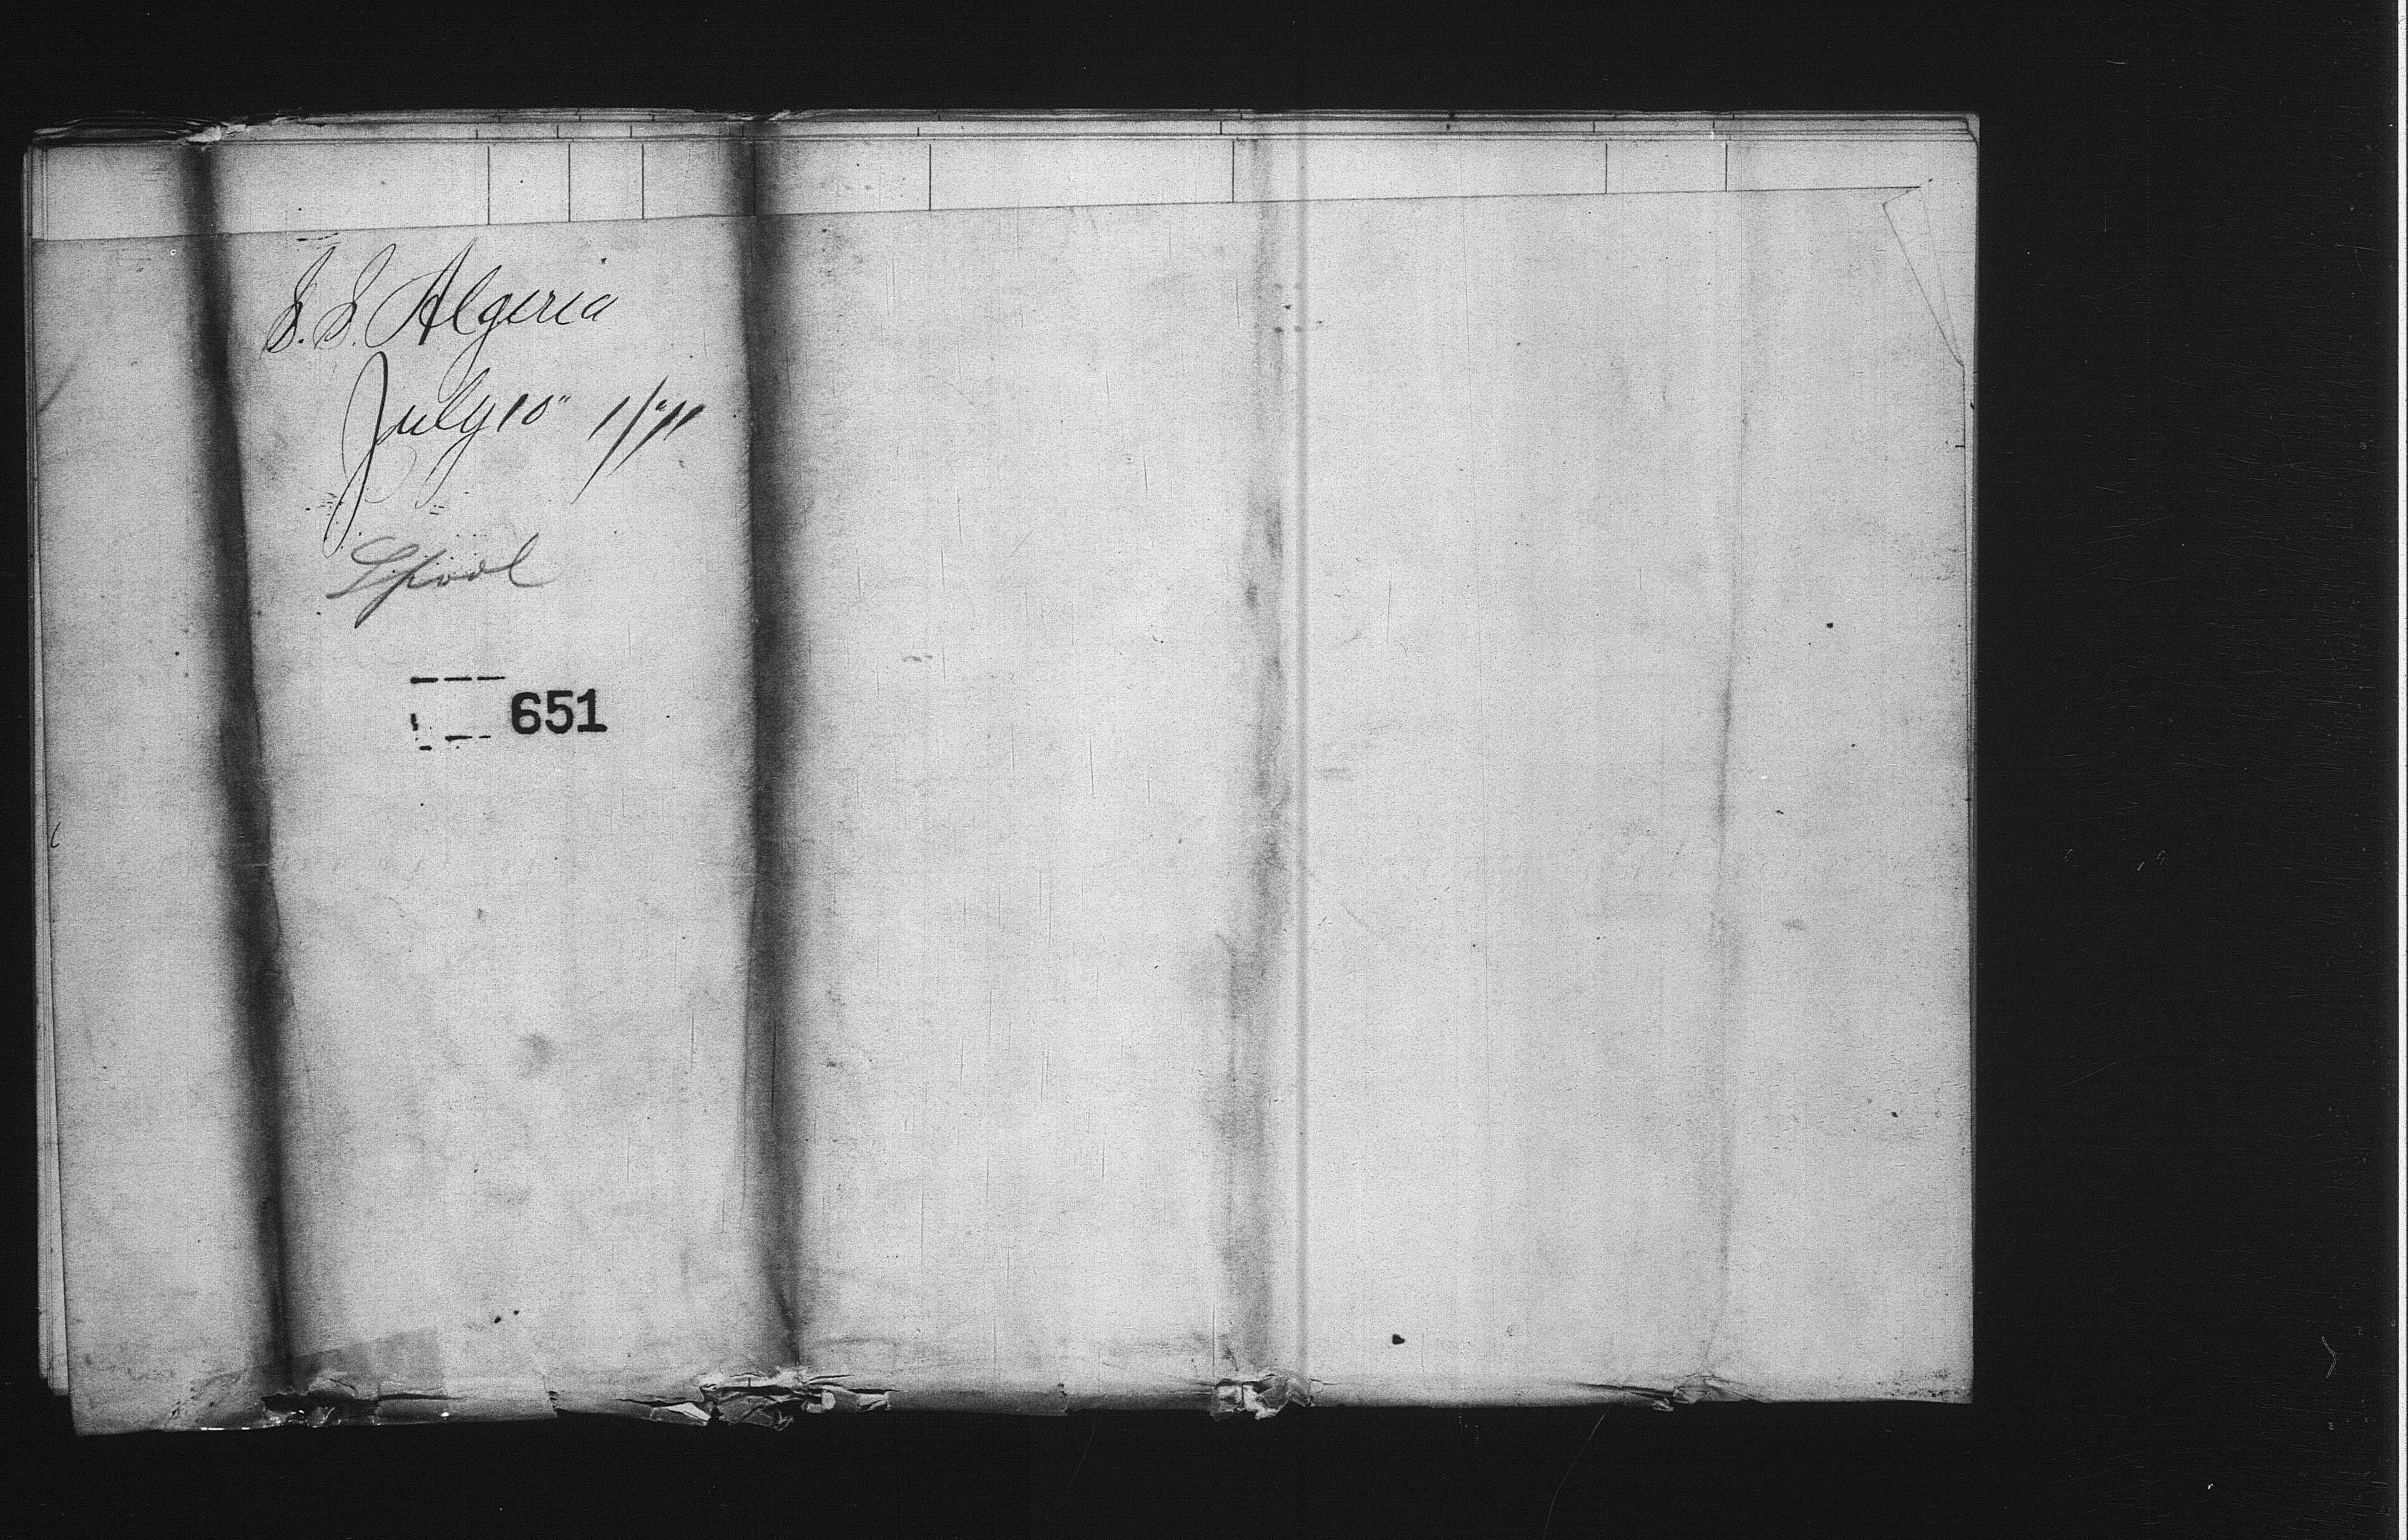 S.S. Algeria
July 10"
Lpool
651